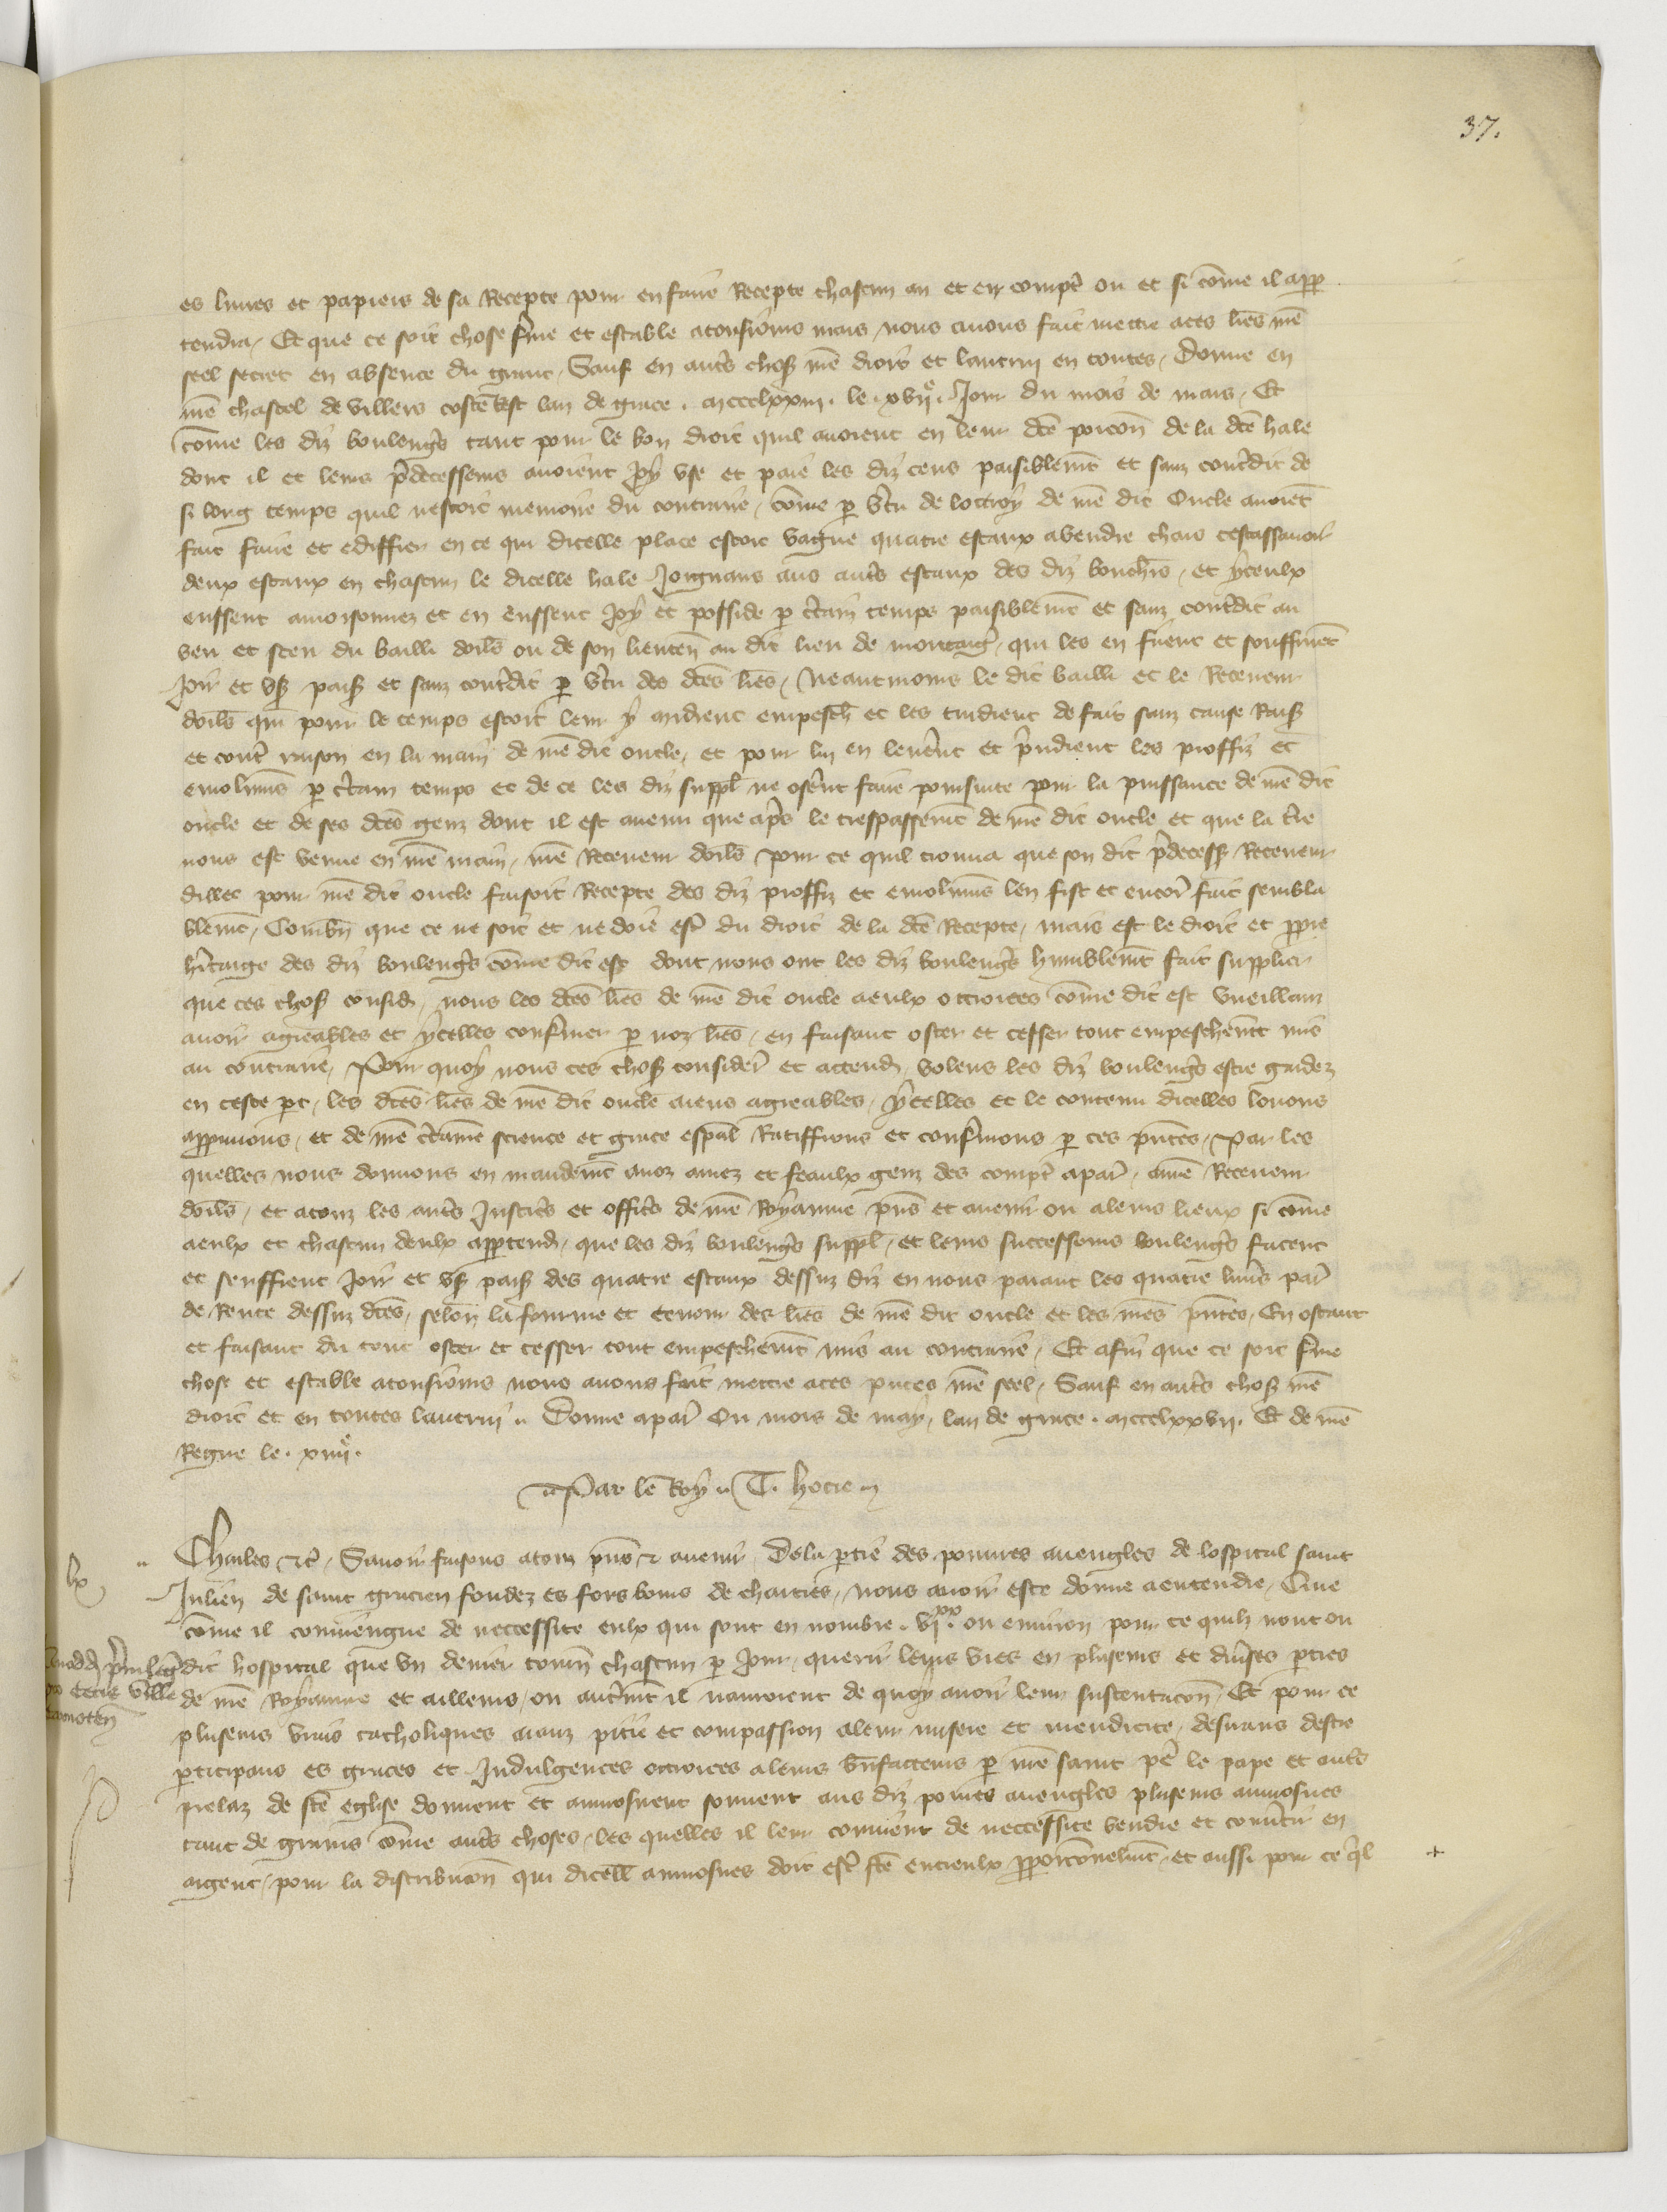 37.
es livres et papiers de sa Recepte pour en faire Recepte chascun an et en compt ou et si come il app
tendra, Et que ce soit chose ferme et estable a tousjours mais, nous avons fait mettre a ces lres nre
seel secret en absence du grant, Sauf en autres choses nre droit et lautruy en toutes, Donne en
nre chastel de Villers costeRest lan de grace . mccclxxiii . le . xvije . Jour du mois de mars, Et
come les diz boulengs tant pour le bon droit quil avoient en leur dte porcon de la dte hale
dont il et leurs predecesseurs avoient joy use et paie les diz cens paisiblemt et sanz contredit de
si long temps quil nestoit memoire du contraire, come p vertu de lottroy de nre dit Oncle avoient
fait faire et ediffier en ce qui dicelle place estoit vague quatre estaux a vendre chars cestassavoir
deux estaux en chascun le dicelle hale Joignans aus autres estaux des diz bouchers, et yceulx
eussent amoisonnez et en eussent joy et posside p certain temps paisiblemt et sanz contredit au
veu et sceu du bailli dorls ou de son lieuten au dit lieu de montarg, qui les en firent et souffrirent
Joir et user pais et sanz contredit p vertu des dtes lres, Neantmoins le dit bailli et le Receveur
dorls qui pour le temps estoit leur y mirdrent empesch et les tindrent de fait sanz cause Rais
et contre raison en la main de nre dit oncle, et pour lui en leverent et prindrent les proffiz et
emolumens p certain temps et de ce les diz suppl ne oserent faire poursuite pour la puissance de nre dit
oncle et de ses dtes genz dont il est avenu que apres le trespassement de nre dit oncle et que la terre
nous est venue en nre main, nre Receveur dorls pour ce quil trouva que son dit predecess Receveur
dillec pour nre dit oncle faisoit Recepte des diz proffiz et emolumens len fist et encore fait sembla
blement, Combn que ce ne soit et ne doie estre du droit de la dte Recepte, mais est le droit et ppre
heritaige des diz boulengs come dit est dont nous ont les diz boulengs humblemt fait supplier
que ces choses consid, nous les dtes lres de nre dit oncle a eulx ottroiees come dit est vueillam
avoir agreables et ycelles confirmer p noz lres, en faisant oster et cesser tout empeschement mis
au contraire, Pour quoy nous ces choses consider et attend, volens les diz boulengs estre gardez
en ceste pt, les dtes lres de nre dit oncle aiens agreables, ycelles et le contenu dicelles louons
approuvons, et de nre certaine science et grace espal Ratiffions et confirmons p ces pntes, Par les
quelles nous donnons en mandemt a noz amez et feaulx genz des compt a par, a nre Receveur
dorls, et a touz les autres Justic et offic de nre Royaume pns et avenir ou a leurs lieux si come
a eulx et chascun deulx apptend, que les diz boulengs suppl, et leurs successeurs boulengs facent
et seuffrent Joir et user pais des quatre estaux dessuz diz en nous paiant les quatre livres par
de Rente dessuz dtes, selon la fourme et teneur des lres de nre dit oncle et les nres pntes, En ostant
et faisant du tout oster et cesser tout empeschement mis au contraire, Et afin que ce soit ferme
chose et estable a tousjours nous avons fait mettre a ces pntes nre seel, Sauf en autres choses nre
droit et en toutes lautrui Donne a par Ou mois de may, lan de grace . mccclxxvij . Et de nre
Regne le . xiiije .
Par le Roy T. hocie
lx
Charles etc, Savoir faisons a touz pns et avenir, De la partie des povures avengles de lospital saint
Julien de saint gracien fondez es fors bours de chartres, nous avoir este donne a entendre, Que
come il conviengne de neccessite eulx qui sont en nombre . vi xx . ou environ pour ce quilz nont ou
dit hospital que un denier tourn chascun p Jour, querir leurs vies en pluseurs et diverses parties
de nre Royaume et ailleurs, ou autrement il nauroient de quoy avoir leur sustentacon, Et pour ce
pluseurs vrais catholiques aians pitie et compassion a leur misere et mendicite, desirans destre
pticipans es graces et Indulgences ottroiees a leurs bnfacteurs p nre saint pere le pape et autres
prelaz de ste eglise donnent et aumosnent souvent aus diz povres avengles pluseurs aumosnes
tant de grains come autres choses, les quelles il leur convient de neccessite vendre et convertir en
argent, pour la distribucon qui dicelles aumosnes doit estre fte entreulx pporcionelmt, et aussi pour ce ql